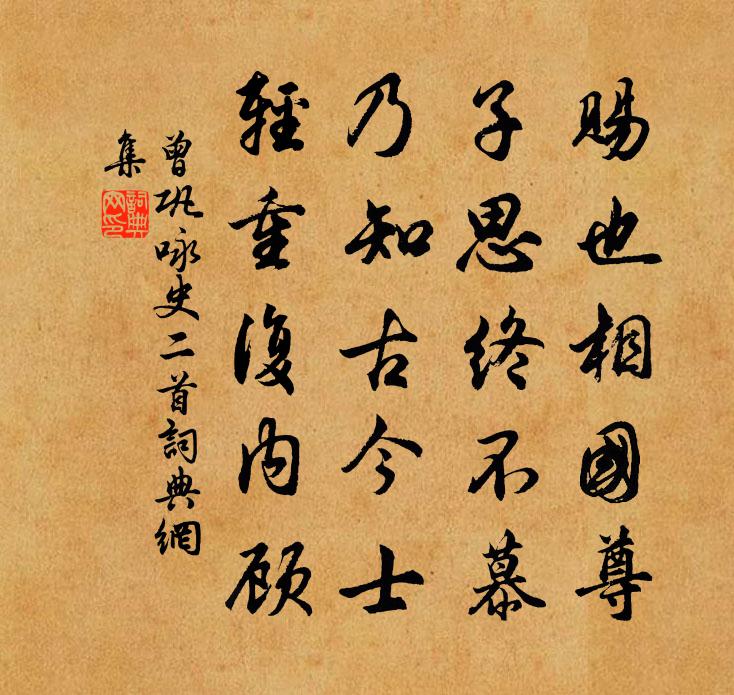 賜也相國尊
子思終不慕
乃知古今士
輕重復内顾
曾巩咏史二首詞典網
集
詞典
网印